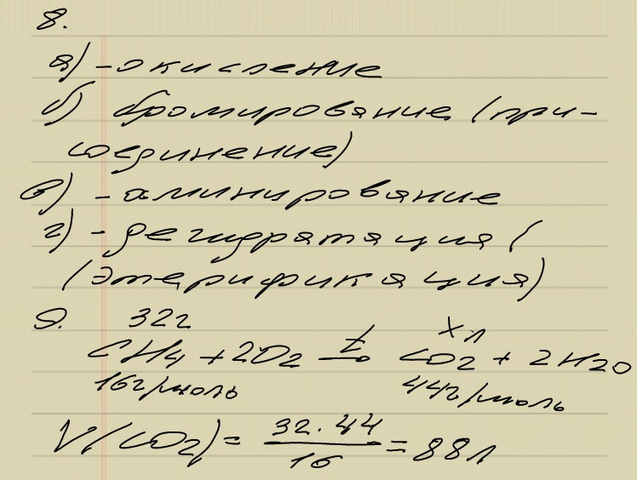 8.
а) - окисление
б) бромирование (при-
соединение)
в) - аминирование
г) - дегидратация (
(этерификация)
9. 32г x л
CH4 + 2O2 t→ CO2 + 2H2O
16г/моль 44г/моль
V(CO2) = 32·44/16 = 88л